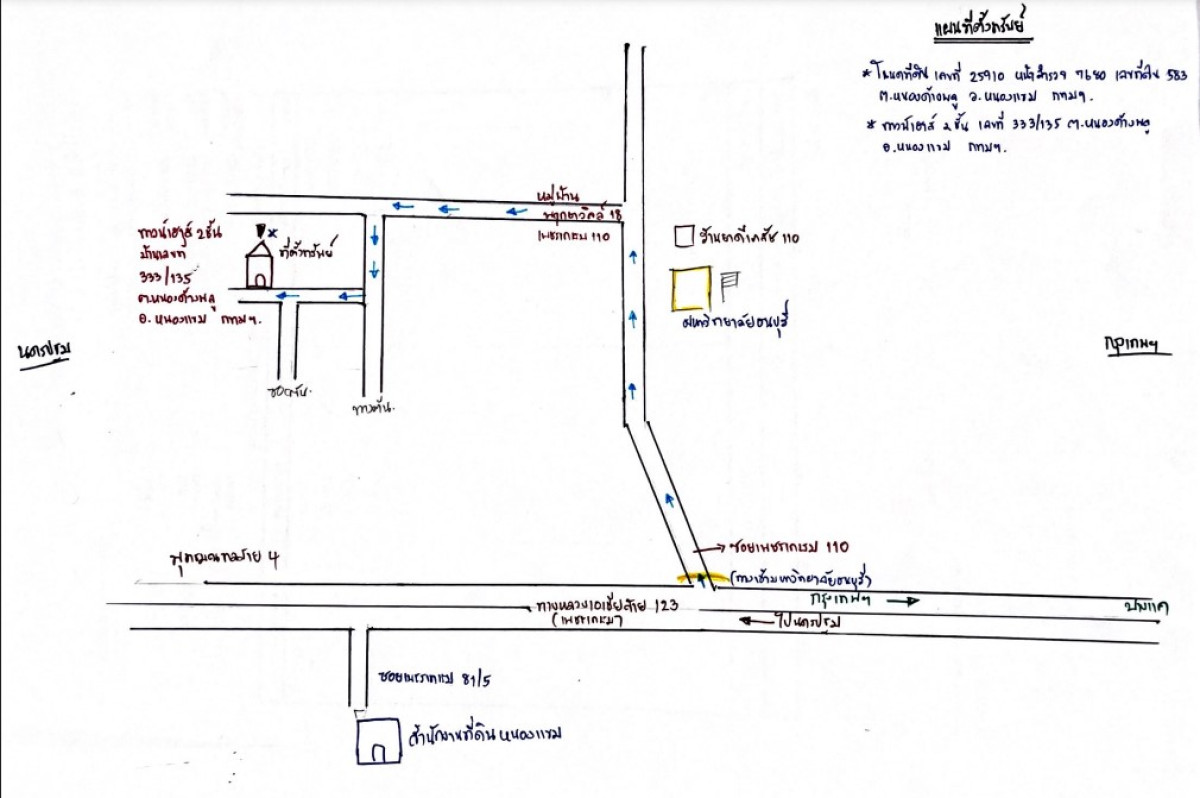 แผนที่ตั้งทรัพย์
* โฉนดที่ดิน เลขที่ 25910 หน้าสำรวจ 7680 เลขที่ดิน 583
ต.หนองค้างพลู อ.หนองแขม กทมฯ.
* ทาวน์เฮาส์ 2 ชั้น เลขที่ 333/135 ต.หนองค้างพลู
อ.หนองแขม กทมฯ.
หมู่บ้าน
พฤกษาวิลล์ 18
เพชรเกษม 110
ทาวน์เฮาส์ 2 ชั้น
บ้านเลขที่
333/135
ต.หนองค้างพลู
อ. หนองแขม กทมฯ.
* ที่ตั้งทรัพย์
ร้าน 110
มหาวิทยาลัยธนบุรี
นครปฐม
กรุงเทพฯ
ซอยตัน.
ทางตัน.
ซอยเพชรเกษม 110
(ทางเข้ามหาวิทยาลัยธนบุรี)
พุทธมณฑลสาย 4
กรุงเทพฯ
ทางหลวงเอเชียสาย 123
(เพชรเกษม)
ไปนครปฐม
ซอยเพชรเกษม 81/5
สำนักงานที่ดิน หนองแขม